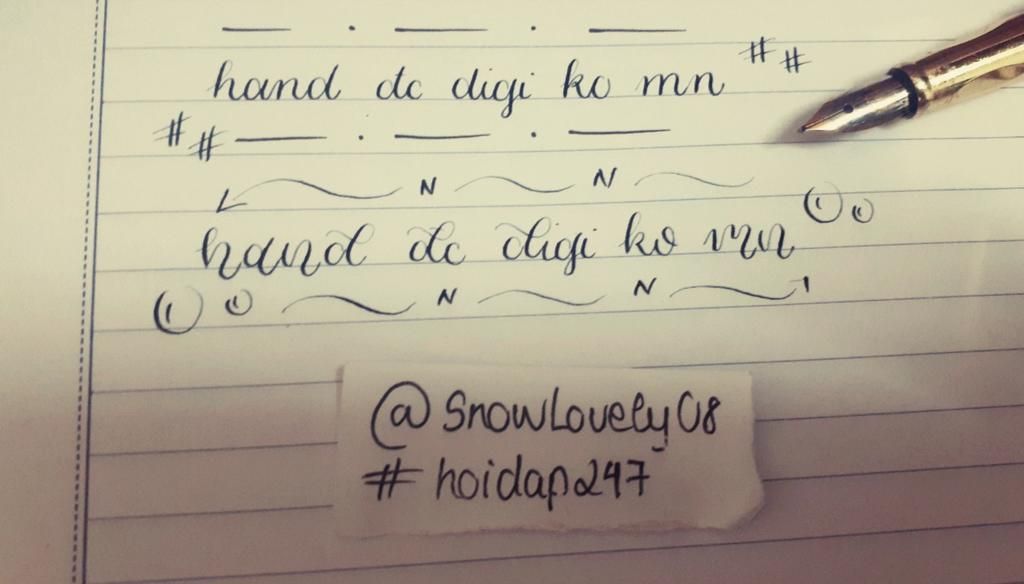 hand dc digi ko mn ##
##
N N
hand dc digi ko mn
N N
@SnowLovely_08
#hoidap247